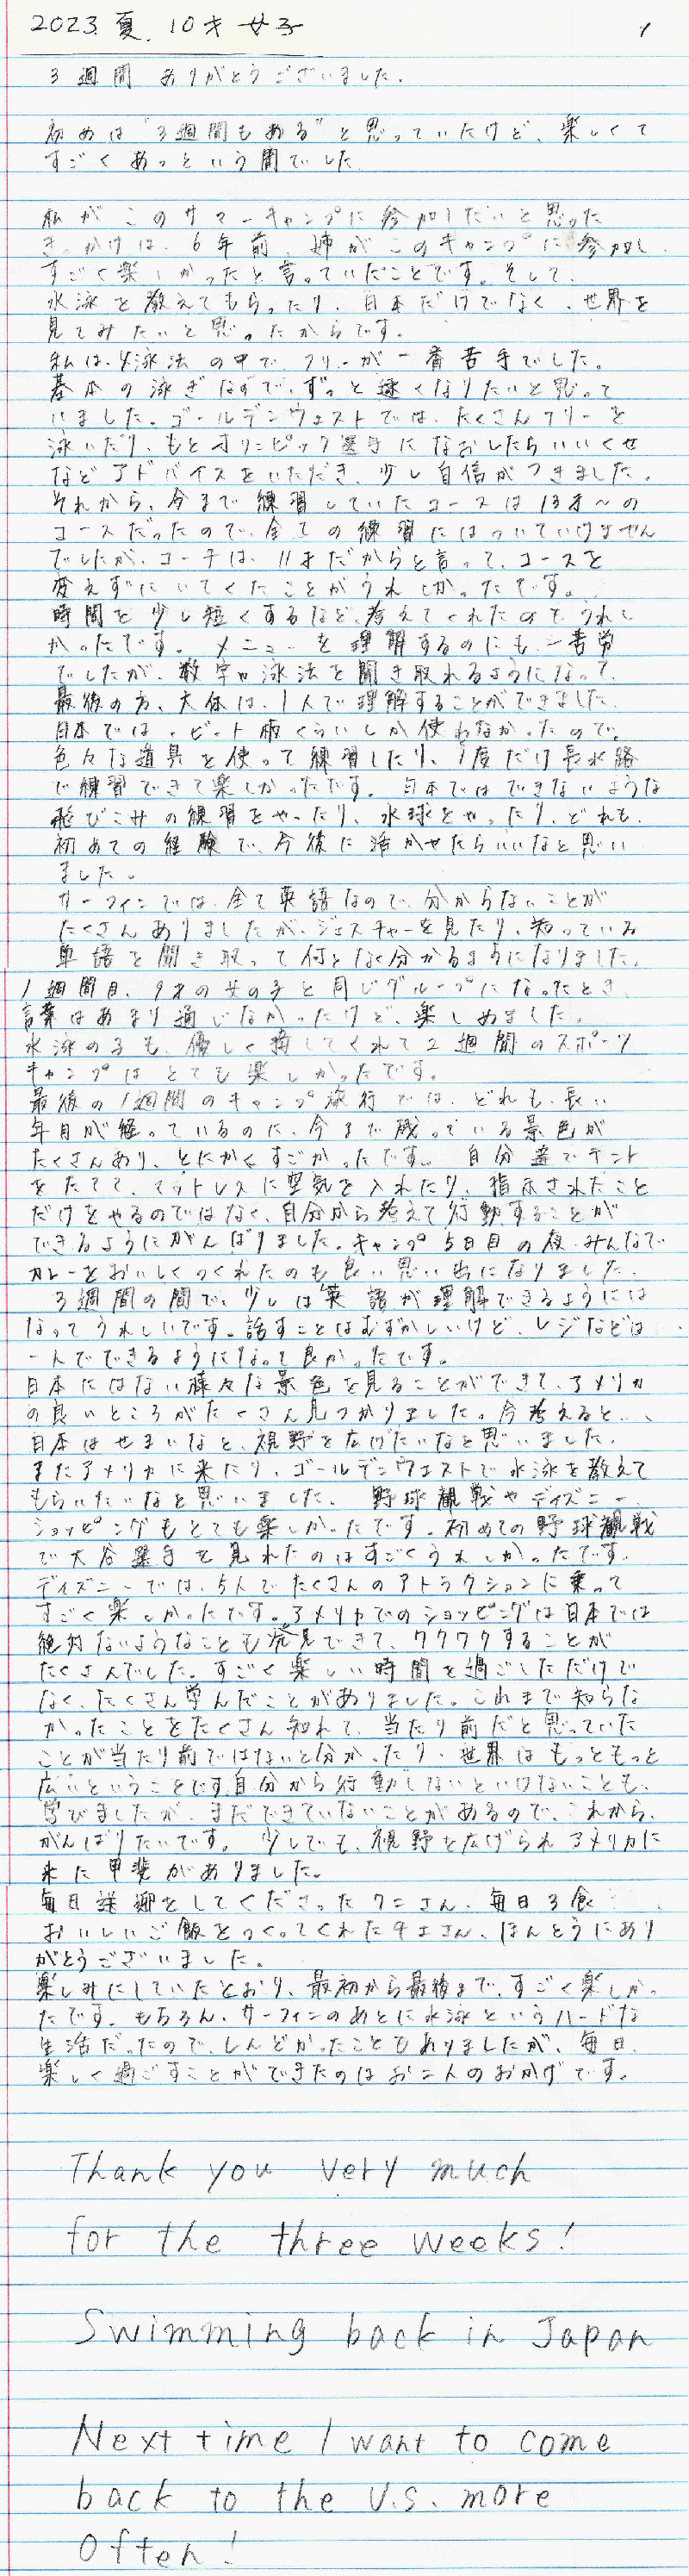 2023.夏. 10才 女子
1
3週間 ありがとうございました.
初めは"3週間もある"と思っていたけど、楽しくて
すごくあっという間でした.
私がこのサマーキャンプに参加したいと思った
きっかけは、6年前 姉がこのキャンプに参加し、
すごく楽しかったと言っていたことです。そして、
水泳を教えてもらったり、日本だけでなく、世界を
見てみたいと思ったからです。
私は、4泳法の中で、フリーが一番苦手でした。
基本の泳ぎなので、ずっと速くなりたいと思って
いました。ゴールデンウェストでは、たくさんフリーを
泳いだり、もとオリンピック選手になおしたらいいくせ
などアドバイスをいただき、少し自信がつきました。
それから、今まで練習していたコースは13才〜の
コースだったので、全ての練習にはついていけません
でしたが、コーチは、11才だからと言って、コースを
変えずにいてくれたことがうれしかったです。
時間を少し短くするなど、考えてくれたのでうれし
かったです。メニューを理解するのにも、一苦労
でしたが、数字や泳法を聞き取れるようになって、
最後の方、大体は、1人で理解することができました。
日本では、ビート板くらいしか使わなかったので、
色々な道具を使って練習したり、1度だけ長水路
で練習できて楽しかったです。日本ではできないような
飛びこみの練習をやったり、水球をやったり、どれも、
初めての経験で、今後に活かせたらいいなと思い
ました。
サーフィンでは、全て英語なので、分からないことが
たくさんありましたが、ジェスチャーを見たり、知っている
単語を聞き取って何となく分かるようになりました。
1週間目、9才の女の子と同じグループになったとき、
言葉はあまり通じなかったけど、楽しめました。
水泳の子も、優しく接してくれて2週間のスポーツ
キャンプはとても楽しかったです。
最後の1週間のキャンプ旅行では、どれも、長い
年月が経っているのに、今まで残っている景色が
たくさんあり、とにかくすごかったです。自分達でテント
をたてて、マットレスに空気を入れたり、指示されたこと
だけをやるのではなく、自分から考えて行動することが
できるようにがんばりました。キャンプ5日目の夜、みんなで
カレーをおいしくつくれたのも良い思い出になりました。
3週間の間で、少しは英語が理解できるようには
なってうれしいです。話すことはむずかしいけど、レジなどは
一人でできるようになって良かったです。
日本にはない様々な景色を見ることができて、アメリカ
の良いところがたくさん見つかりました。今考えると、
日本はせまいなと、視野を広げたいなと思いました。
またアメリカに来たり、ゴールデンウェストで水泳を教えて
もらいたいなと思いました。野球観戦やディズニー
ショッピングもとても楽しかったです。初めての野球観戦
で大谷選手を見れたのはすごくうれしかったです。
ディズニーでは、5人でたくさんのアトラクションに乗って
すごく楽しかったです。アメリカでのショッピングは日本では
絶対ないようなことも発見できて、ワクワクすることが
たくさんでした。すごく楽しい時間を過ごしただけで
なく、たくさん学んだことがありました。これまで知らな
かったことをたくさん知れて、当たり前だと思っていた
ことが当たり前ではないと分かったり、世界はもっともっと
広いということです。自分から行動しないといけないことも、
学びましたが、まだできていないことがあるので、これから、
がんばりたいです。少しでも、視野を広げられアメリカに
来た甲斐がありました。
毎日送迎をしてくださったクニさん、毎日3食
おいしいご飯をつくってくれたチエさん、ほんとうにあり
がとうございました。
楽しみにしていたとおり、最初から最後まで、すごく楽しかっ
たです。もちろん、サーフィンのあとに水泳というハードな
生活だったので、しんどかったこともありましたが、毎日、
楽しく過ごすことができたのはお二人のおかげです。
Thank you very much
for the three weeks!
Swimming back in Japan
Next time I want to come
back to the U.S. more
often!